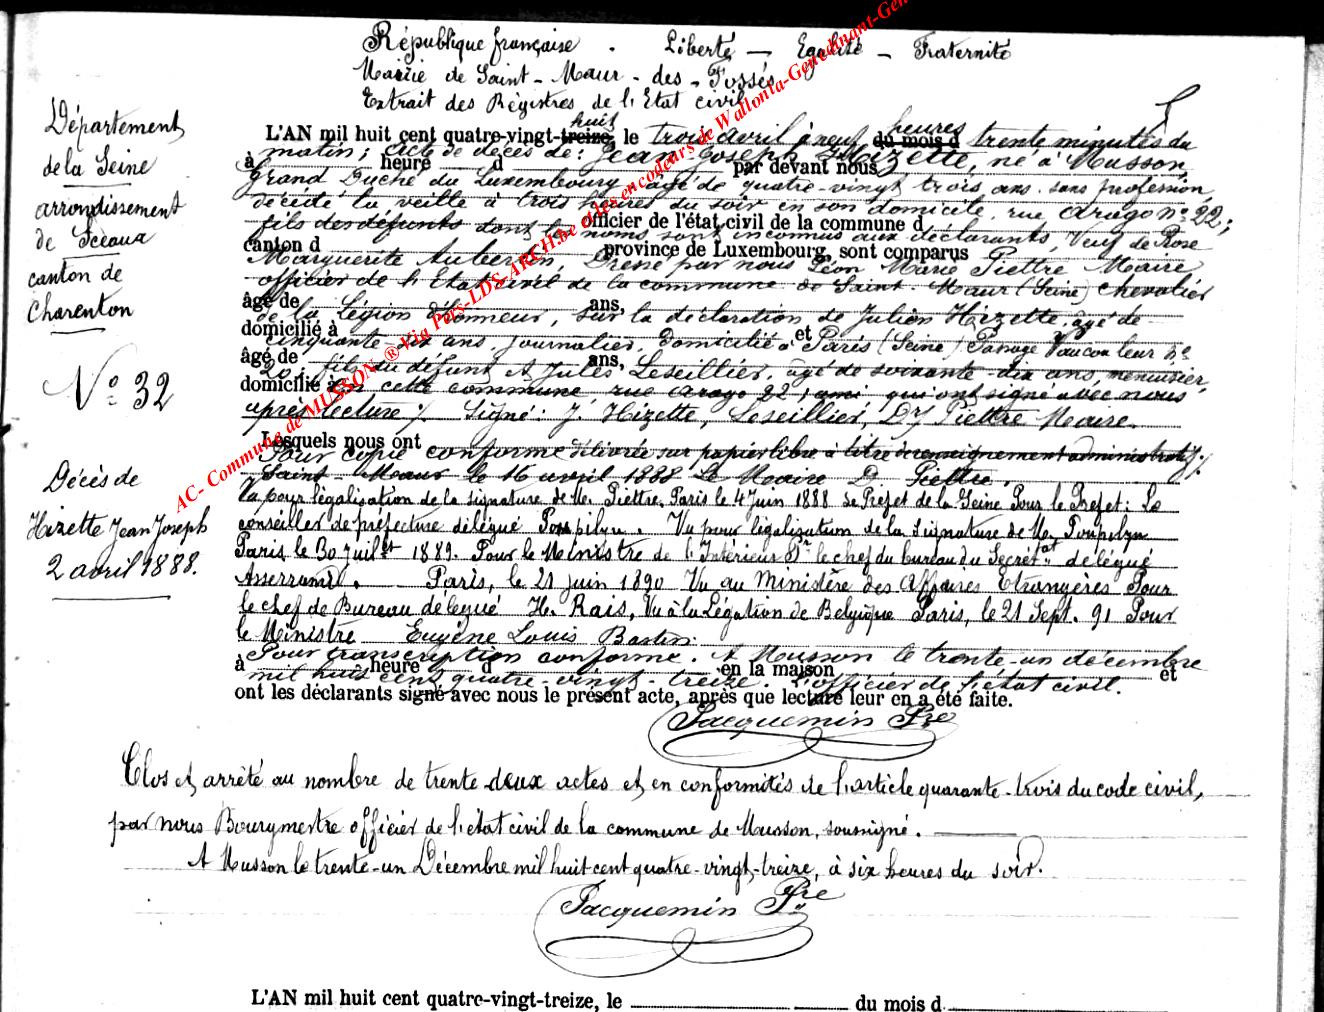 République française . Liberté — Egalité — Fraternité
Mairie de Saint-Maur-des-Fossés
Extrait des Régistres de l'Etat civil
Département
de la Seine
arrondissement
de Sceaux
canton de
Charenton
N° 32
Décès de
Hizette Jean Joseph
2 avril 1888.
L'AN mil huit cent quatre-vingt-treize, huit le trois avril à neuf du mois d heures trente minutes du
matin; acte de décès de: Jean-Joseph Hizette, né à Musson,
à heure d par devant nous
grand Duché du Luxembourg, âgé de quatre-vingt trois ans. sans profession
décédé la veille à trois heures du soir en son domicile, rue Arago n° 22;
fils des défunts dont les noms sont inconnus aux déclarants, Veuf de Rose
officier de l'état civil de la commune d
canton d province de Luxembourg, sont comparus
Marguerite Aubertin, Dressé par nous Léon Marie Piettre Maire
officier de l'Etat civil de la commune de Saint-Maur (Seine) chevalier
âgé de ans,
de la Légion d'honneur, sur la déclaration de Julien Hizette, âgé de
domicilié à et
cinquante-six ans, journalier, domicilié à Paris (Seine) Passage Vaucouleur n°
âgé de ans,
20, fils du défunt et Jules Leseillier, âgé de soixante-dix ans, menuisier,
domicilié à en cette commune, rue Arago 22, ami, qui ont signé avec nous
après lecture /. Signé: J. Hizette, Leseillier, Dr Piettre Maire.
Lesquels nous ont
Pour copie conforme délivrée sur papier libre à titre de renseignement administratif /.
Saint-Maur le 16 avril 1888 Le Maire D. Piettre.
Vu pour légalisation de la signature de M. Piettre. Paris le 4 Juin 1888 Le Préfet de la Seine Pour le Préfet: Le
conseiller de préfecture délégué . Vu pour légalisation de la signature de M.
Paris le 30 Juillet 1889. Pour le Ministre de l'Intérieur Pr le chef du bureau du Secrétat délégué
. Paris, le 21 Juin 1890 Vu au Ministère des Affaires Etrangères Pour
le chef de Bureau délégué H. Rais, Vu à la Légation de Belgique Paris, le 21 Sept. 91 Pour
le Ministre Eugène Louis Bastin.
Pour transcription conforme. A Musson le trente-un décembre
à heure d en la maison et
mil huit cent quatre-vingt-treize. L'officier de l'état civil.
ont les déclarants signé avec nous le présent acte, après que lecture leur en a été faite.
Jacquemin Pre
Clos et arrêté au nombre de trente deux actes et en conformités de l'article quarante-trois du code civil,
par nous Bourgmestre officier de l'état civil de la commune de Musson, soussigné.
A Musson le trente-un Décembre mil huit cent quatre-vingt-treize, à six heures du soir.
Jacquemin Pre
L'AN mil huit cent quatre-vingt-treize, le du mois d
AC- Commune de MUSSON - ® Via Pers-LDS-ARCH.be et les encodeurs de Wallonia-Genedinant-Gen